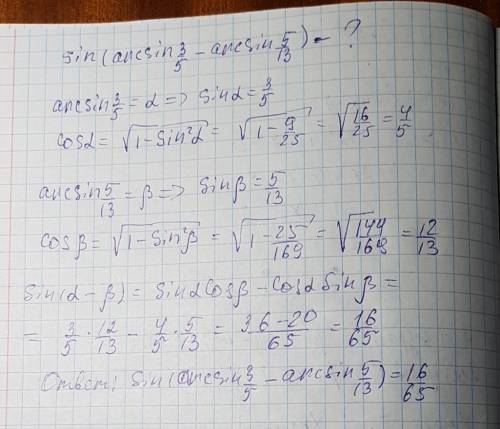 sin(arcsin 3/5 - arcsin 5/13) - ?
arcsin 3/5 = α => sinα = 3/5
cosα = √(1-sin²α) = √(1-9/25) = √(16/25) = 4/5
arcsin 5/13 = β => sinβ = 5/13
cosβ = √(1-sin²β) = √(1-25/169) = √(144/169) = 12/13
sin(α-β) = sinαcosβ - cosαsinβ =
= 3/5 · 12/13 - 4/5 · 5/13 = (36-20)/65 = 16/65
Ответ: sin(arcsin 3/5 - arcsin 5/13) = 16/65